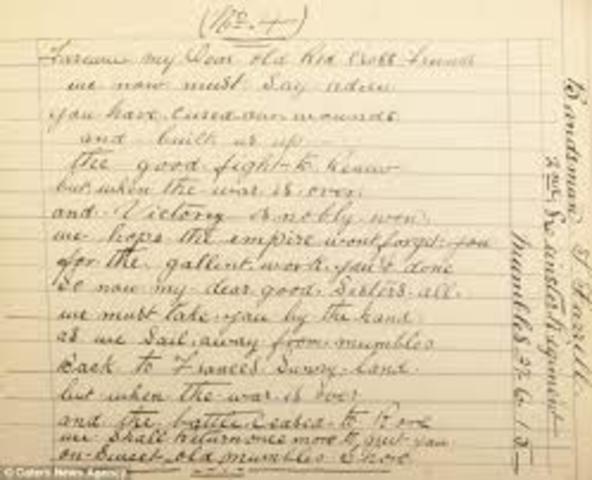 (No. 4)
Farewell my Dear old Red Cross Friends
we now must say adieu
you have cured our wounds
and built us up
the good fight to Renew
but when the war is over
and Victory is nobly won
we hope the empire wont forget you
for the gallent work you've done
so now my dear good Sisters all.
we must take you by the hand
as we Sail away from mumbles
Back to Frances Sunny land.
but when the war is over
and the battle ceased to Rore
we shall return once more to greet you
on Sweet old mumbles Shore
Bandsman Farrell
Leinster Regiment
Mumbles 27.6.15
© Caters News Agency